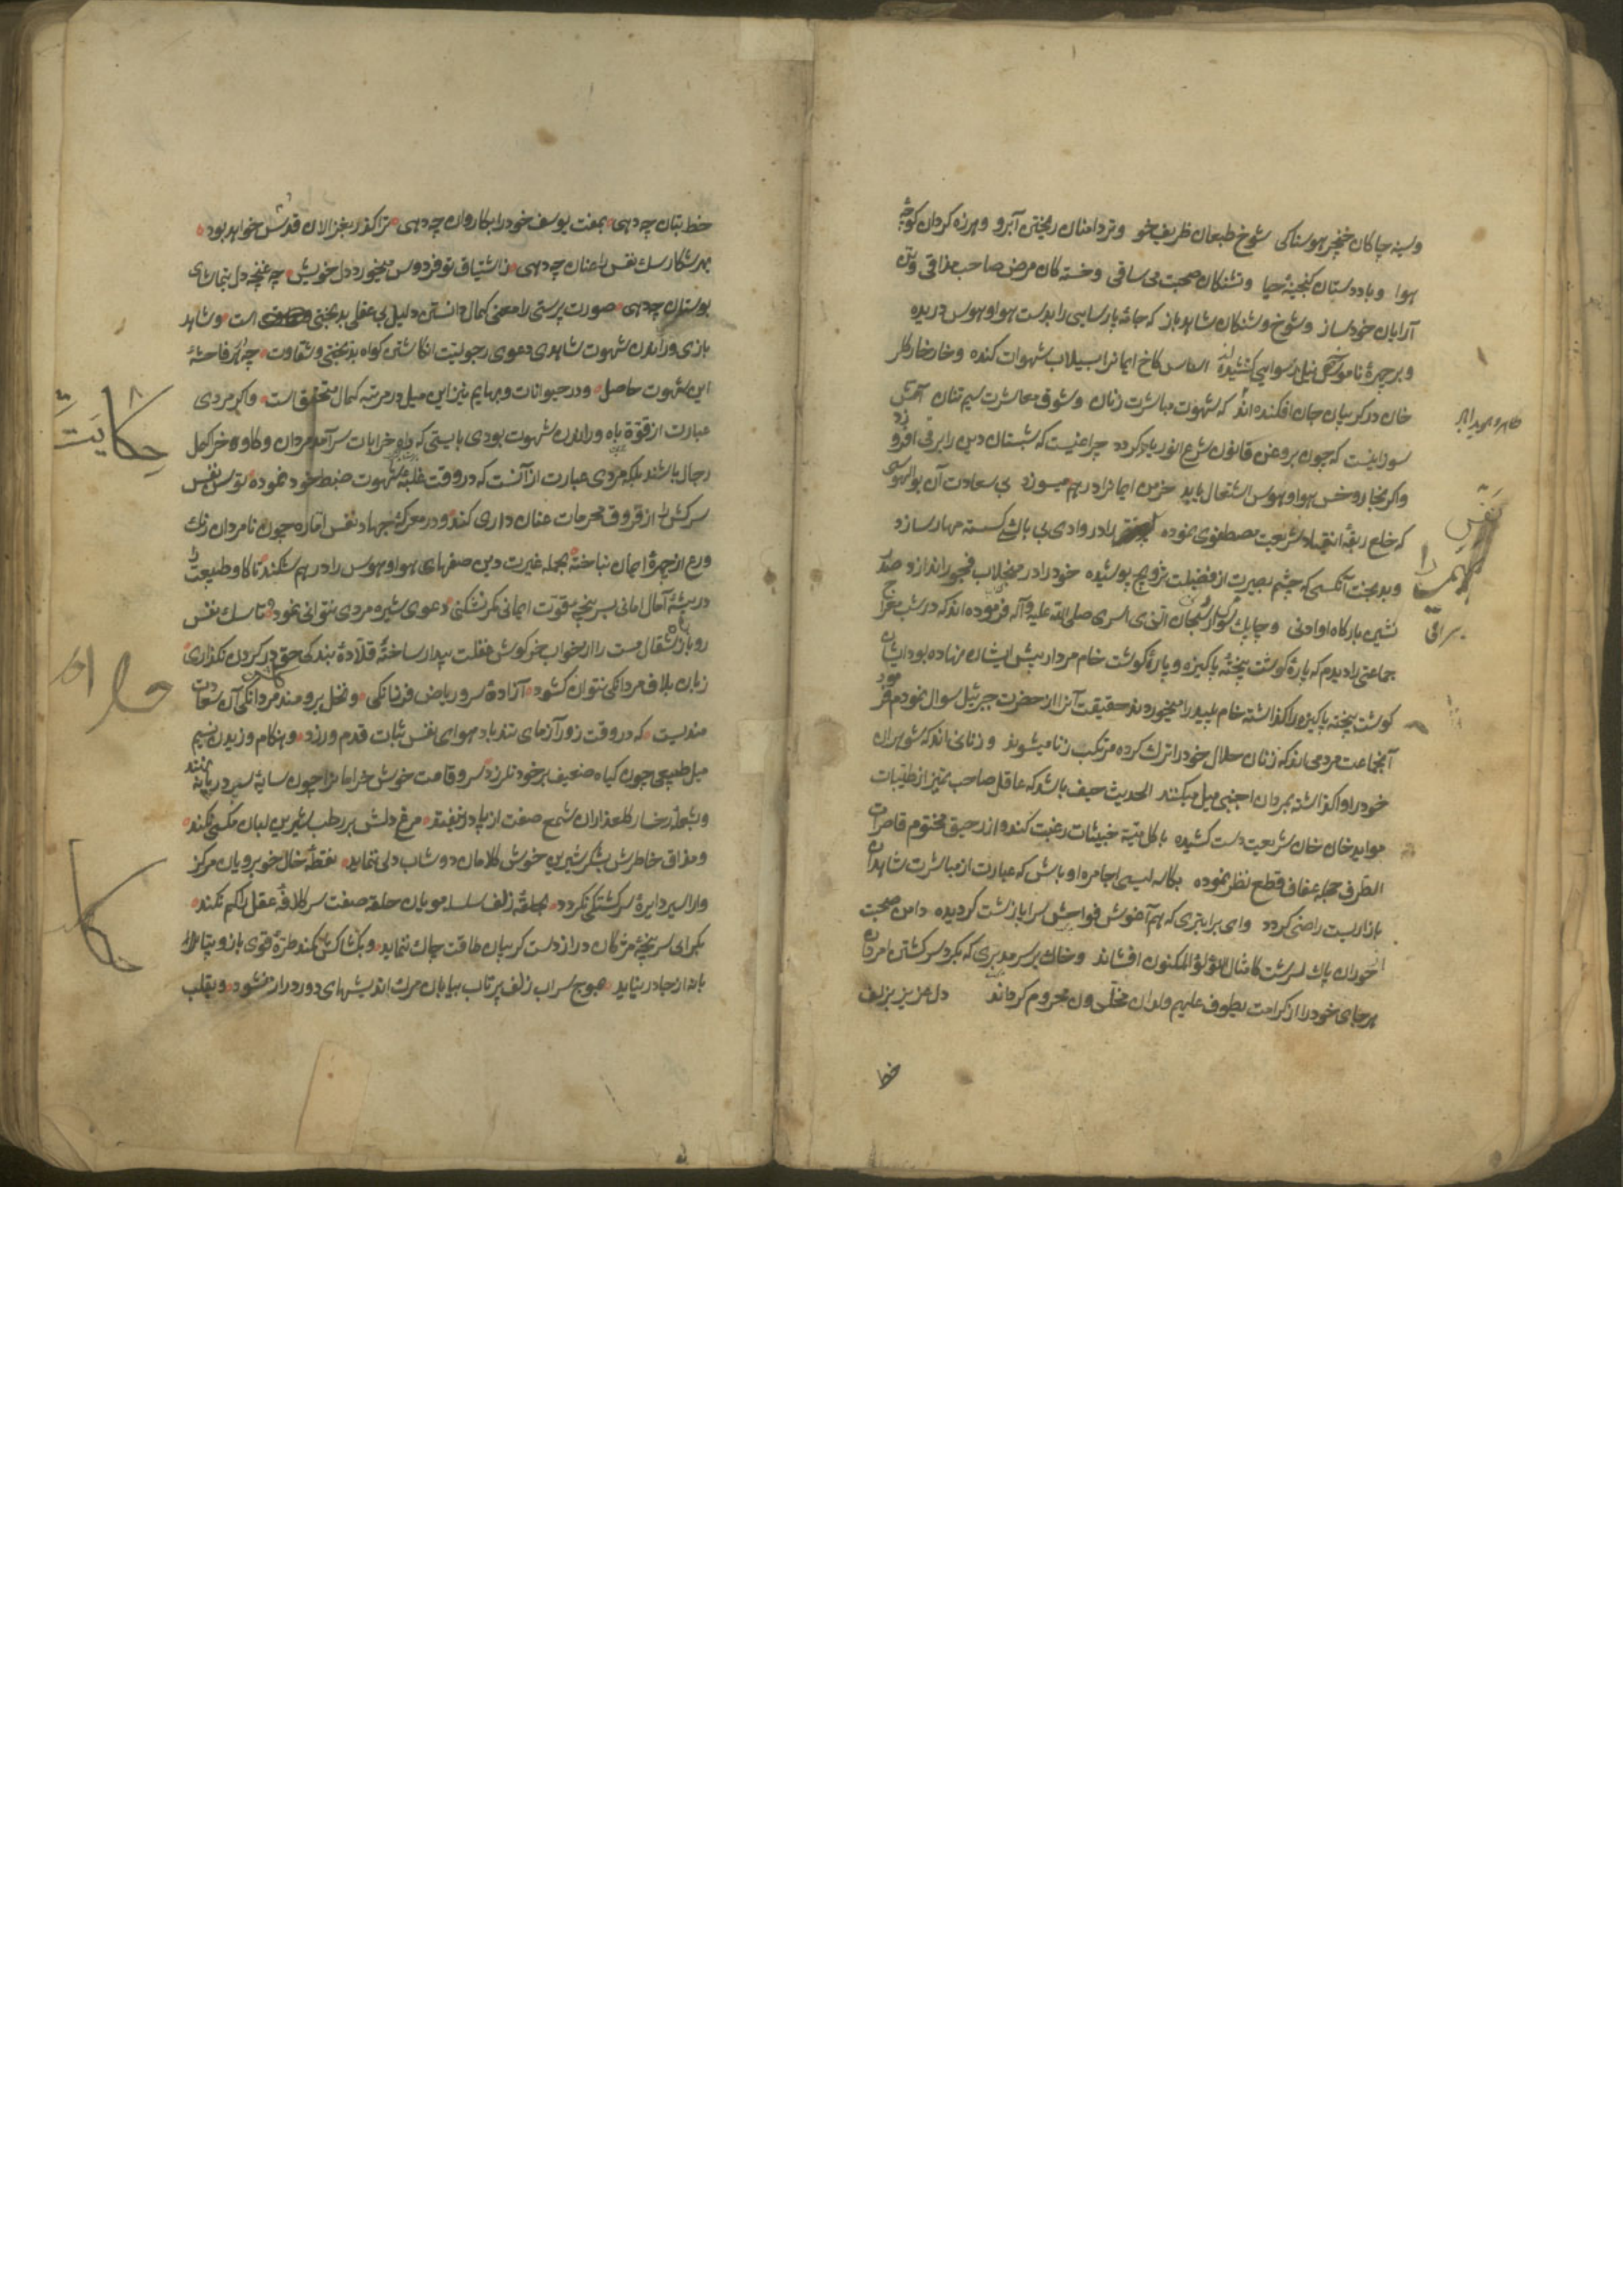 وسینه چاکان خنجر هوسناکی شوخ طبعان ظریف خو وتردامنان ریختن آبرو وهرزه کردان کوچۀ
هوا وبادستان کنجینۀ حیا وتشنکان صحبت بی ساقی وخسته کان مرض صاحب مذاقی
آرایان خودساز وشوخ وشنکان شاهدباز که جامۀ پارسایی را بدست هوا وهوس دریده
وبر چهرۀ ناموس نیل رسوایی کشیده اساس کاخ ایمانرا بسیلاب شهوات کنده وخار خار کل
خان در کریبان جان افکنده اند که شهوت مباشرت زنان وشوق معاشرت سیم تنان آتش
سوزانیست که چون بروغن قانون شرع انور یاد کردد چراغیست که شبستان دین را برقی افروزد
واکر بخار وخس هوا وهوس اشتعال یابد خرمن ایمانرا در هم میسوزد بی سعادت آن بوالهوسی
که خلع ربقۀ انقیاد شریعت مصطفوی نموده نفس بهیمیت را در وادی بی باکی کسسته مهار سازد
وبدبخت آنکسی که چشم بصیرت از فضیلت تزویج پوشیده خود را در منجلاب فجور اندازد
نشین بارکاه او ادنی وچابک سوار سبحان الذی اسری صلی الله علیه وآله فرموده اند که در شب معراج
جماعتی را دیدم که پارۀ کوشت پختۀ پاکیزه وپارۀ کوشت خام مردار پیش ایشان نهاده بود ایشان
کوشت پخته پاکیزه را کذاشته خام پلید را میخوردند حقیقت آنرا از حضرت جبرئیل سوال نمودم فرمود
آنجماعت مردمی اند که زنان حلال خود را ترک کرده مرتکب زنا میشوند وزنانی اند که شوهران
خود را واکذاشته بمردان اجنبی میل میکنند الحدیث حیف باشد که عاقل صاحب تمیز از طیبات
مواید خان شریعت دست کشیده باکل میتۀ خبیثات رغبت کند واز رحیق مختوم قاصرات
الطرف حجلۀ عفاف قطع نظر نموده بکاسه لیسی اوباش که عبارت از مباشرت شاهدان
بازاریست راضی کردد وای بر ابتری که هم آغوش فواحش سرا پا زشت کردیده دامن صحبت
حوران پاک سرشت کامثال اللؤلؤ المکنون افشاند وخاک بر سر مدبری که بکرد سر کشتن امردان
هرجای خود را از کرامت یطوف علیهم ولدان مخلدون محروم کرداند دل عزیز بزلف
خط
طاهر وحیداله
نفس
بهیمیت را
براقی
خط بتان چه دهی بمفت یوسف خود را بکاروان چه دهی ترا کذر بغزالان قدس خواهد بود
بهر شکار سک نفس را عنان چه دهی ز اشتیاق تو فردوس میخورد دل خویش چه غنچه دل بتماشای
بوستان چه دهی صورت پرستی را معنی کمال دانستن دلیل بی عقلی بدبختی است وشاهد
بازی وراندن شهوت شاهدی دعوی رجولیت انکاشتن کواه بدبختی وشقاوت چه از هر فاحشۀ
این شهوت حاصل ودر حیوانات وبهایم نیز این میل در مرتبه کمال متحقق است واکر مردی
عبارت از قوّة باه وراندن شهوت بودی بایستی که خرابات سرآمد مردان وکاو وخر اکمل
رجال باشند بلکه مردی عبارت از آنست که در وقت غلبۀ شهوت ضبط خود نموده توسن نفس
سرکش را از قروق محرمات عنان داری کند ودر معرکۀ جهاد نفس اماره چون نامردان رنک
ورع از چهرۀ ایمان نباخته بحمله غیرت دین صفهای هوا وهوس را در هم شکند تا کاو طبیعت را
در بیشۀ آمال امانی بسر پنجه قوّت ایمانی کمر نشکنی دعوی شیره مردی نتوانی نمود تا سک نفس
روباز شغال مست را از خواب خرکوش غفلت بیدار ساختۀ قلادۀ بندکی حق در کردن نکذاری
زبان بلاف مردانکی نتوان کشود آزادۀ سرو ریاض فرزانکی ونخل برومند مردانکی آن سعادت
مندیست که در وقت زورآزمای تندباد هوای نفس ثبات قدم ورزد وهنکام وزیدن نسیم
میل طبیعی چون کیاه ضعیف بر خود نلرزد سرو قامت خوش خرامانرا چون سایه سر در پا ننهد
وبشعلۀ رخسار کلعذاران شمع صفت از پا در نیفتد مرغ دلش بر رطب شیرین لبان مکسی نکند
ومذاق خاطرش بشکر شیرین خوش کلامان دوشاب دلی ننماید نقطۀ خال خوبرویان مرکز
وار اسیر دایرۀ سرکشتکی نکردد بحلقۀ زلف سلسله مویان حلقه صفت سر کلافۀ عقل را کم نکند
بکرای سرپنجۀ مژکان دراز دست کریبان طاقت چاک ننماید وبکشاکش کمند طرۀ قوی بازو
پا از جا در نیاید بموج سراب زلف پرتاب بیابان مرک اندیشهای دور دراز نشود وبقلب
حکایت